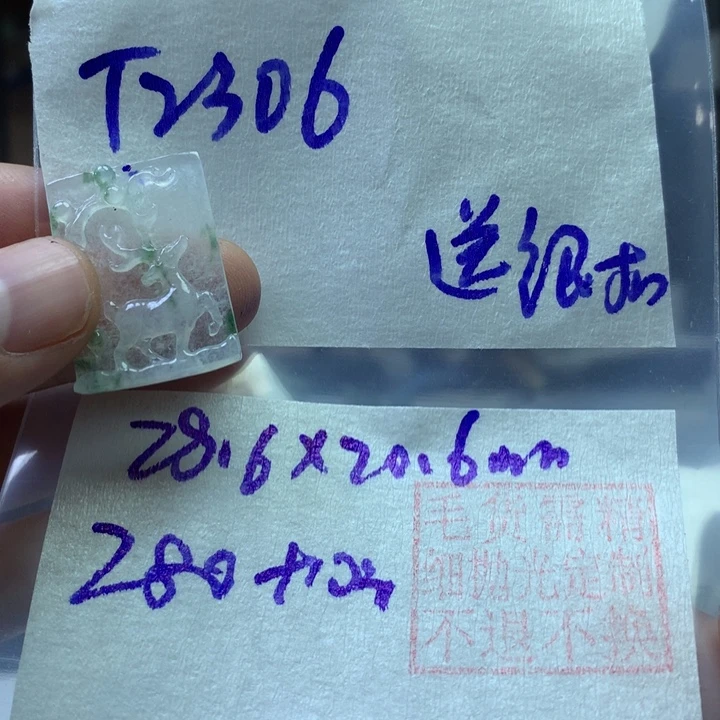 T2306
送银扣
28.6×20.6mm
280
毛货需精
细抛光定制
不退不换